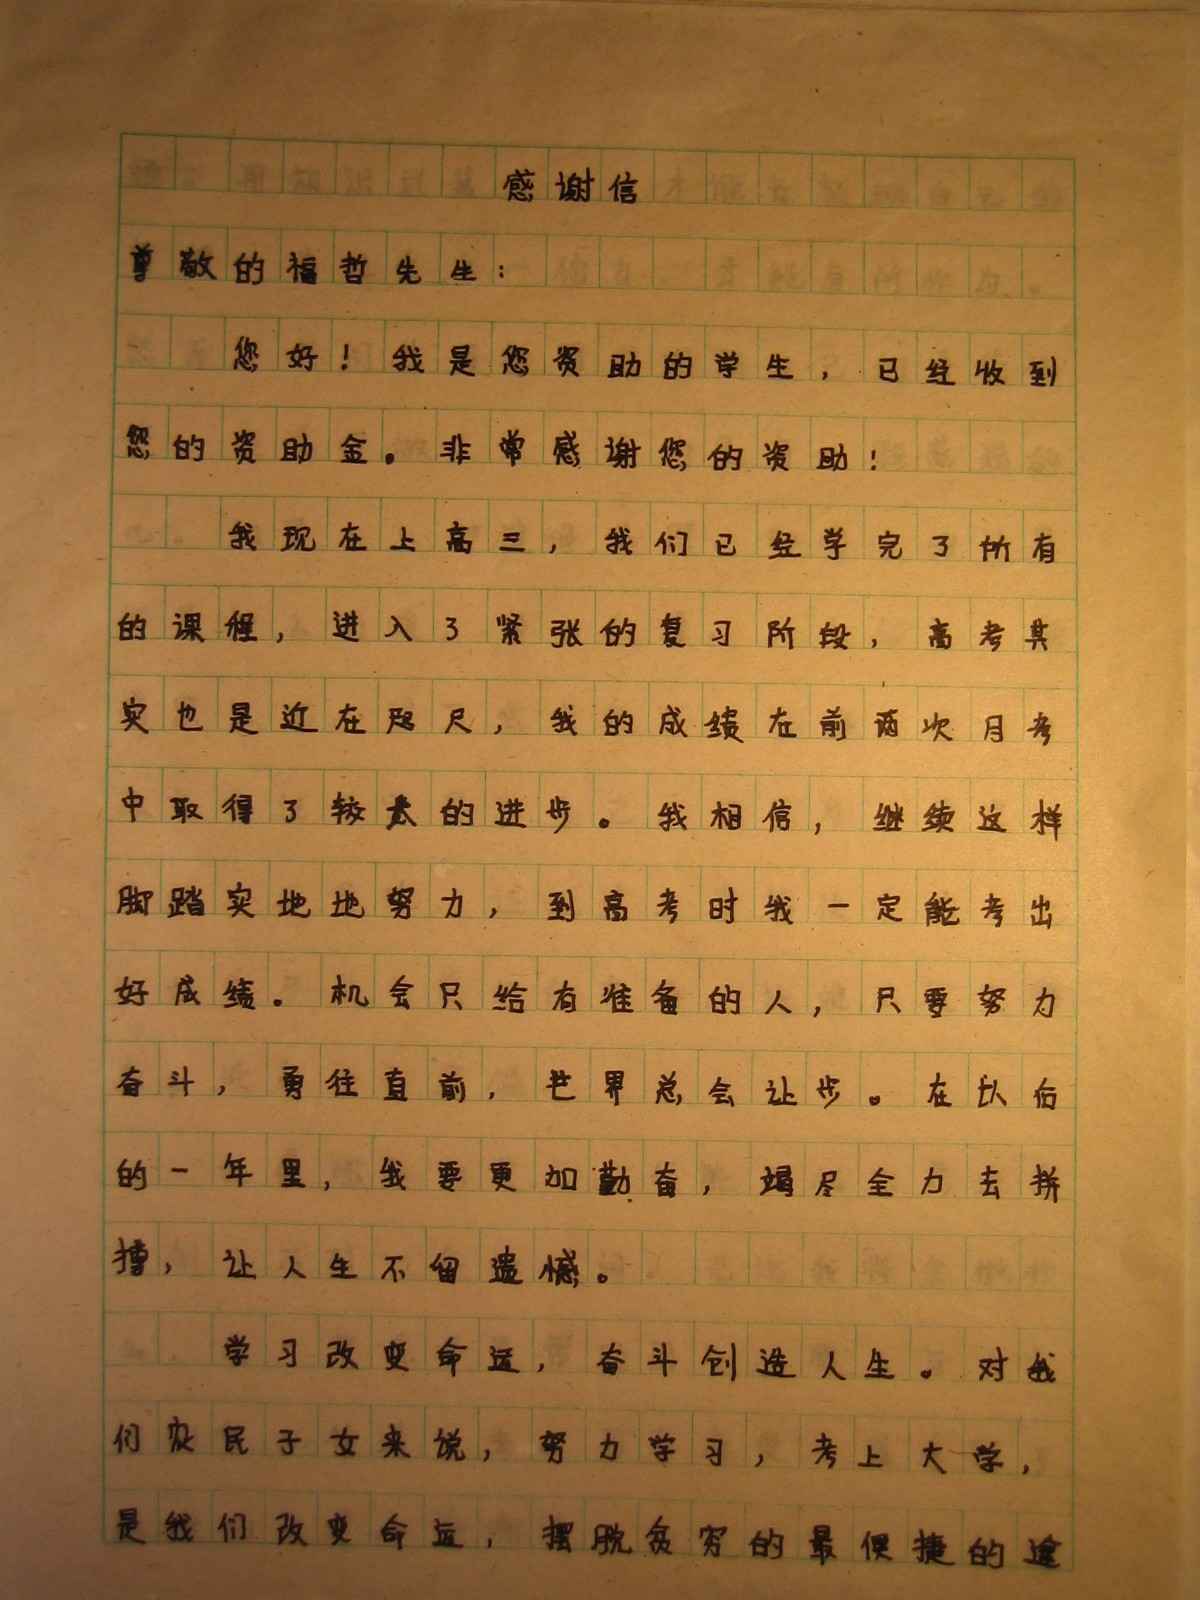 感谢信
尊敬的福哲先生：
您好！我是您资助的学生，已经收到
您的资助金。非常感谢您的资助！
我现在上高三，我们已经学完了所有
的课程，进入了紧张的复习阶段，高考其
实也是近在咫尺，我的成绩在前两次月考
中取得了较大的进步。我相信，继续这样
脚踏实地地努力，到高考时我一定能考出
好成绩。机会只给有准备的人，只要努力
奋斗，勇往直前，世界总会让步。在以后
的一年里，我要更加勤奋，竭尽全力去拼
搏，让人生不留遗憾。
学习改变命运，奋斗创造人生。对我
们农民子女来说，努力学习，考上大学，
是我们改变命运，摆脱贫穷的最便捷的途